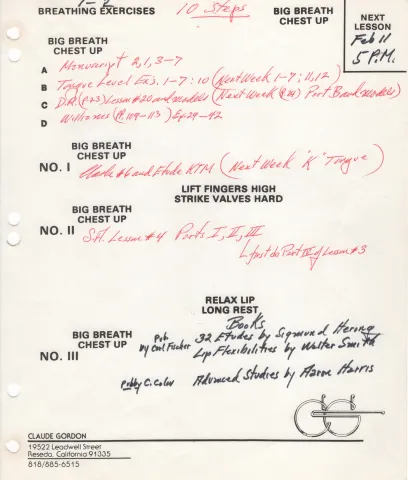 1-8
BREATHING EXERCISES 10 Steps BIG BREATH
CHEST UP
NEXT
LESSON
Feb 11
5 P.M.
BIG BREATH
CHEST UP
A Manuscript 2, 1, 3-7
B Tongue Level Exs. 1-7: 10 (Next Week 1-7; 11, 12)
C D.R. (P.23) Lesson #20 and models (Next Week (P.24) Part B and models)
D Williames (P. 119-113) Ex 29-42
BIG BREATH
CHEST UP
NO. I Clarke #6 and Etude KTM (Next Week "K" Tongue)
LIFT FINGERS HIGH
STRIKE VALVES HARD
BIG BREATH
CHEST UP
NO. II St. Lesson #4 Parts I, II, III
just do Part III of Lesson #3
RELAX LIP
LONG REST
Books
BIG BREATH
CHEST UP
NO. III
Pub. by Carl Fischer 32 Etudes by Sigmund Hering
Lip Flexibilities by Walter Smith
by C. Colin Advanced Studies by Aaron Harris
CG
CLAUDE GORDON
19522 Leadwell Street
Reseda, California 91335
818/885-6515